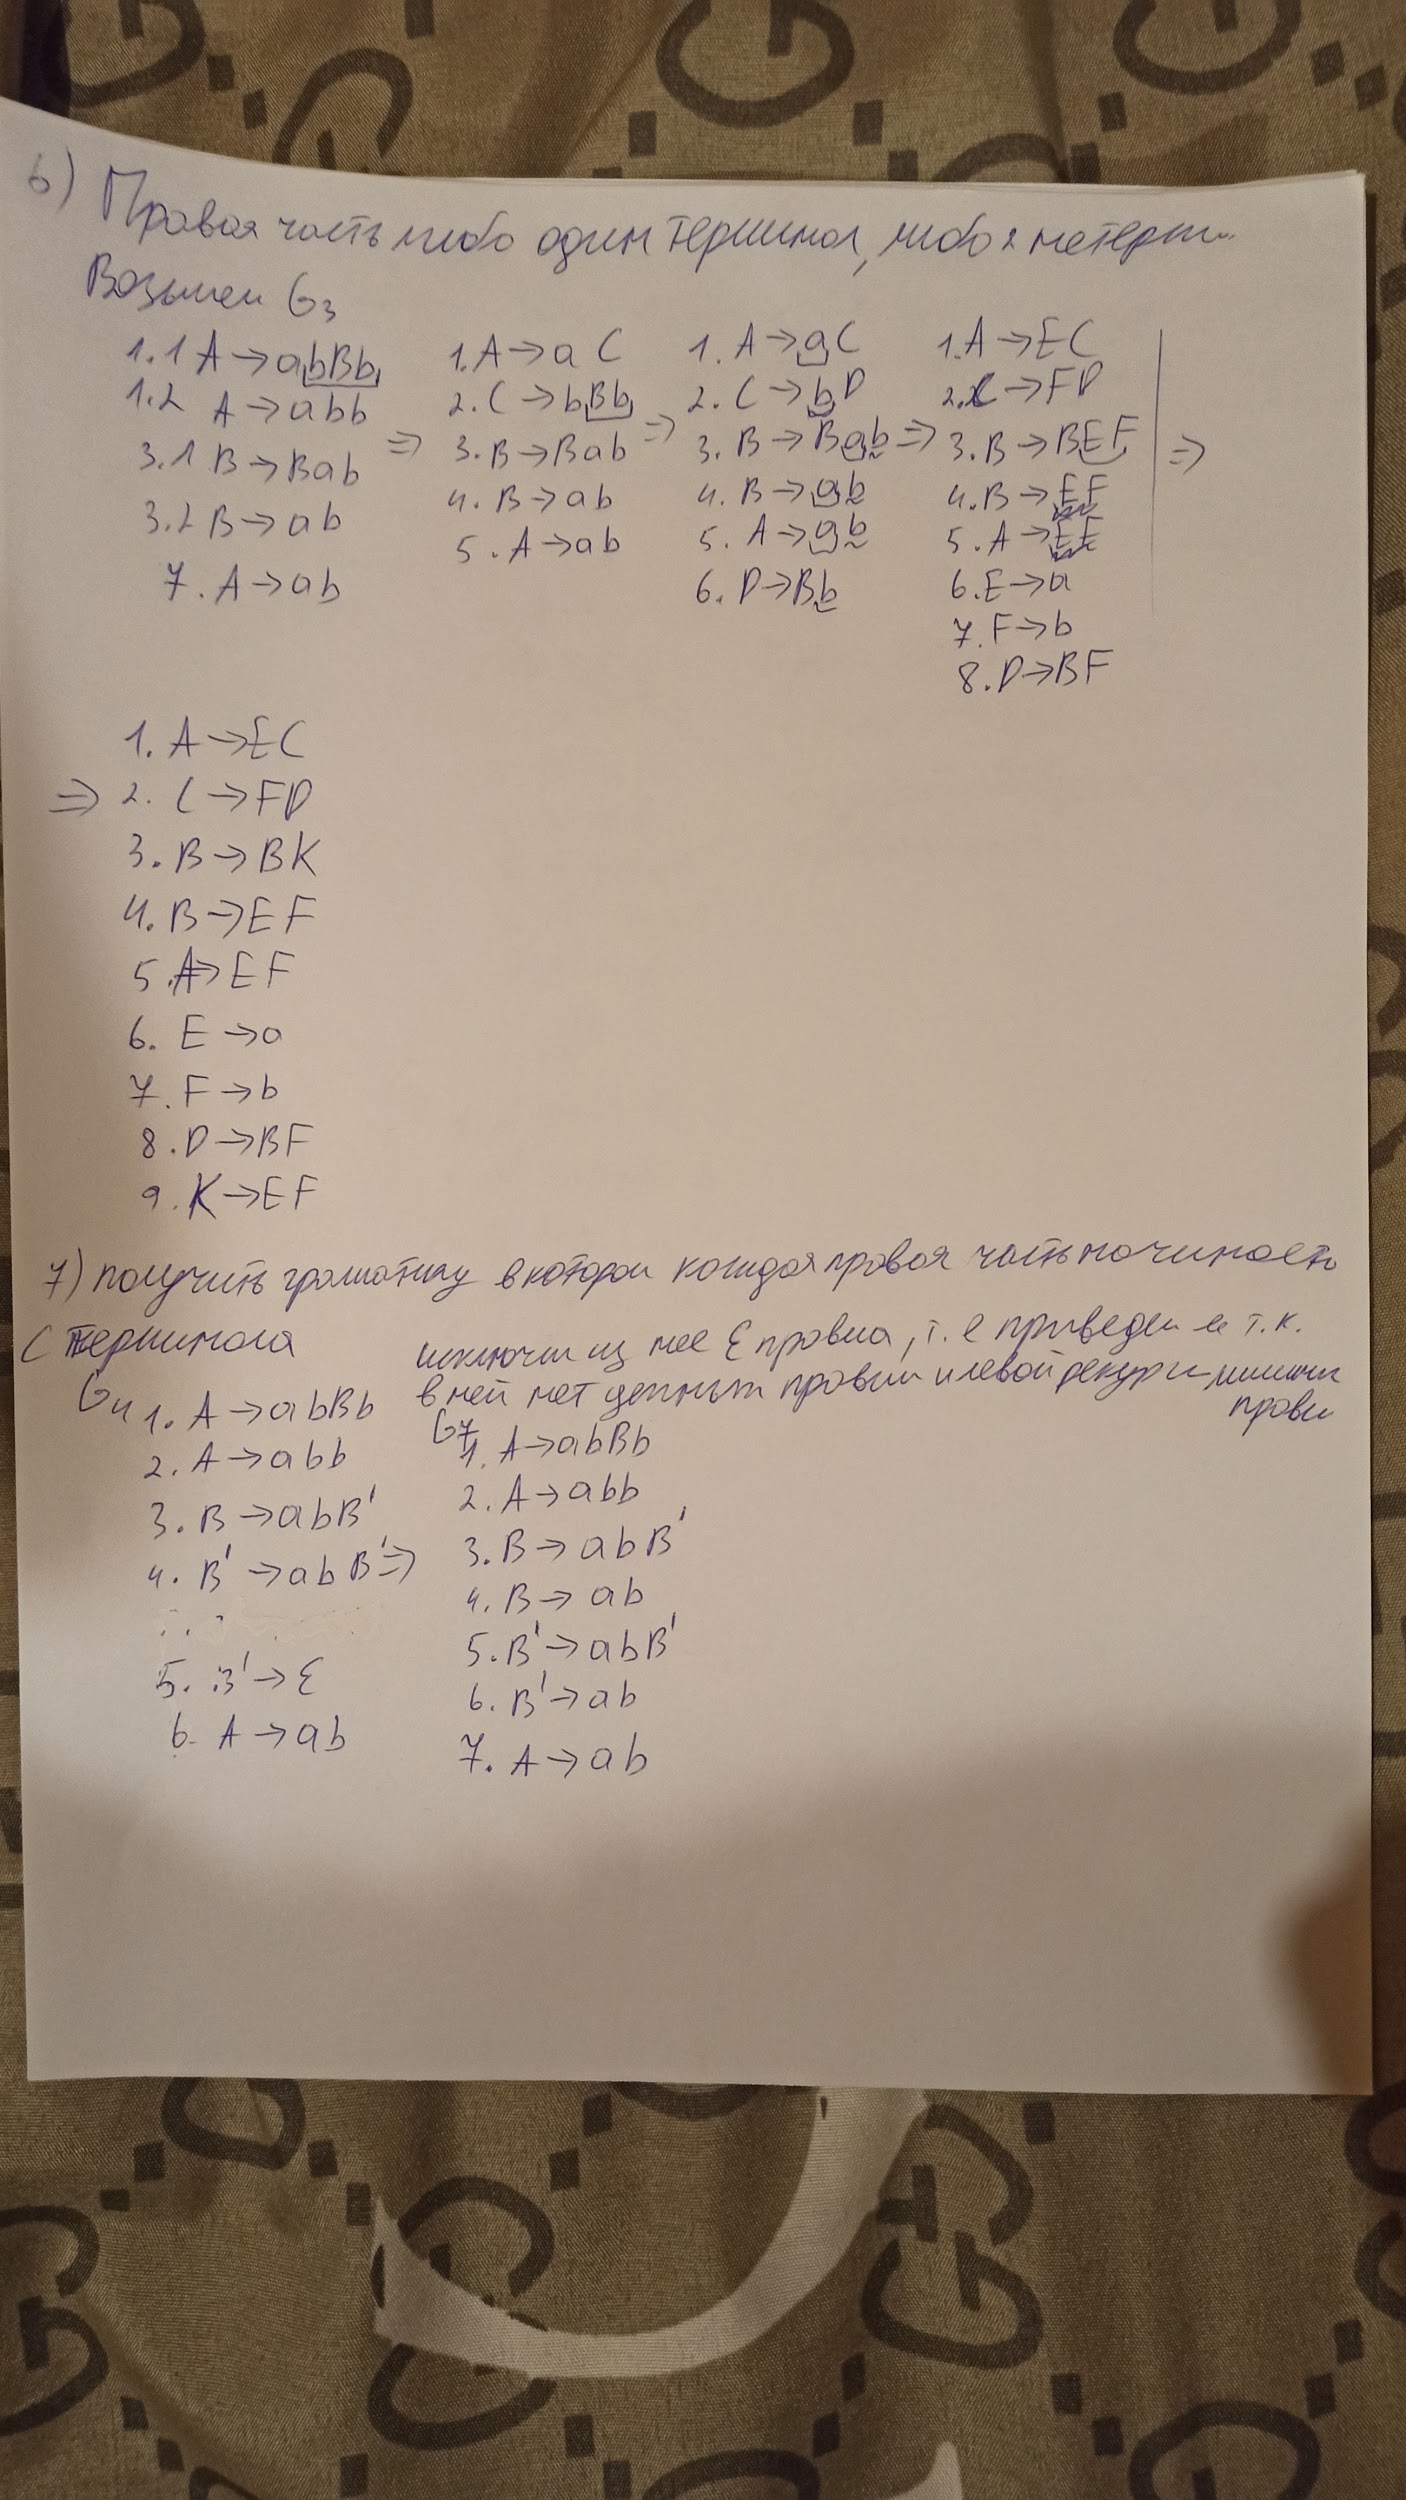 6) Правая часть либо один терминал, либо 2 нетерм...
Возьмем G3
1.1 A→abBb
1.2 A→abb
3.1 B→Bab
3.2 B→ab
7. A→ab
⇒
1. A→aC
2. C→bBb
3. B→Bab
4. B→ab
5. A→ab
⇒
1. A→aC
2. C→bD
3. B→Bab
4. B→ab
5. A→ab
6. D→Bb
⇒
1. A→EC
2. C→FD
3. B→BEF
4. B→EF
5. A→EF
6. E→a
7. F→b
8. D→BF
⇒
1. A→EC
⇒ 2. C→FD
3. B→BK
4. B→EF
5. A→EF
6. E→a
7. F→b
8. D→BF
9. K→EF
7) получить граматику в которой каждая правая часть начиность
с терминала
G4 1. A→abBb
2. A→abb
3. B→abB'
4. B'→abB' ⇒
5. B'→ε
6. A→ab
исключи из нее ε правила, т.е приведем ее т.к.
в ней нет цепных правил и левой рекурси
прави
G7
1. A→abBb
2. A→abb
3. B→abB'
4. B→ab
5. B'→abB'
6. B'→ab
7. A→ab